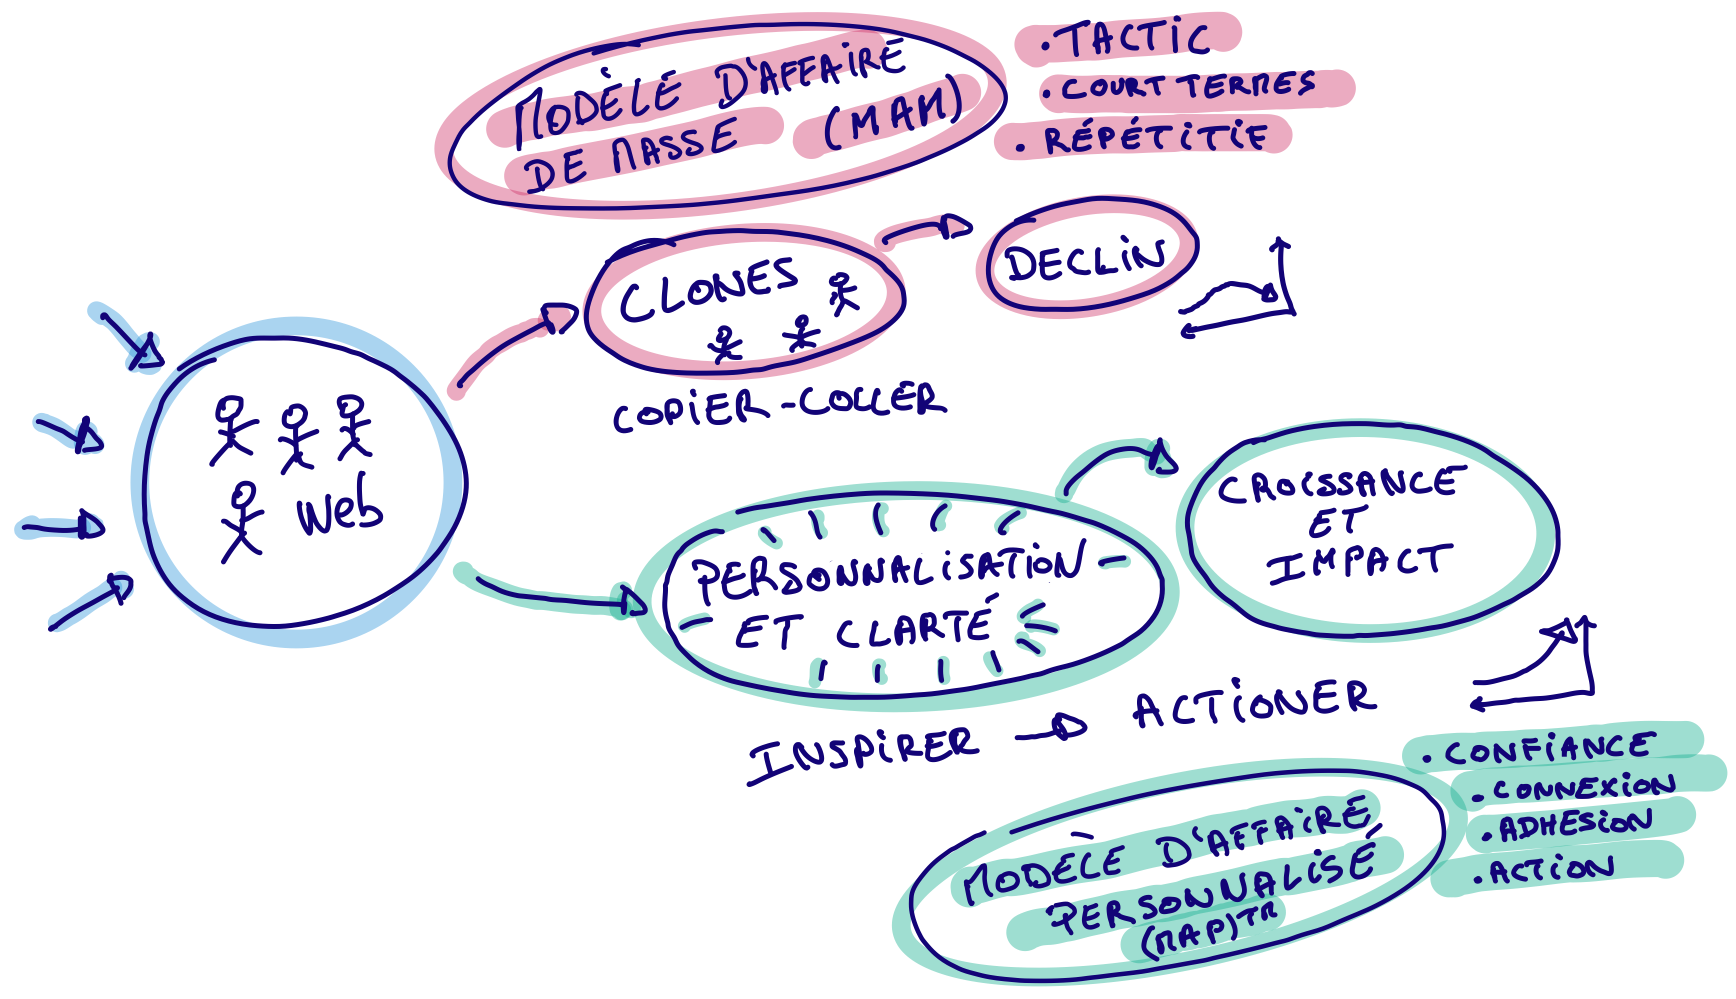 MODÈLE D'AFFAIRE
DE MASSE (MAM)
• TACTIC
• COURT TERMES
• RÉPÉTITIF
CLONES
DECLIN
COPIER-COLLER
Web
PERSONNALISATION
ET CLARTÉ
CROISSANCE
ET
IMPACT
INSPIRER → ACTIONER
MODÈLE D'AFFAIRE
PERSONNALISÉ
(MAP)TM
• CONFIANCE
• CONNEXION
• ADHESION
• ACTION